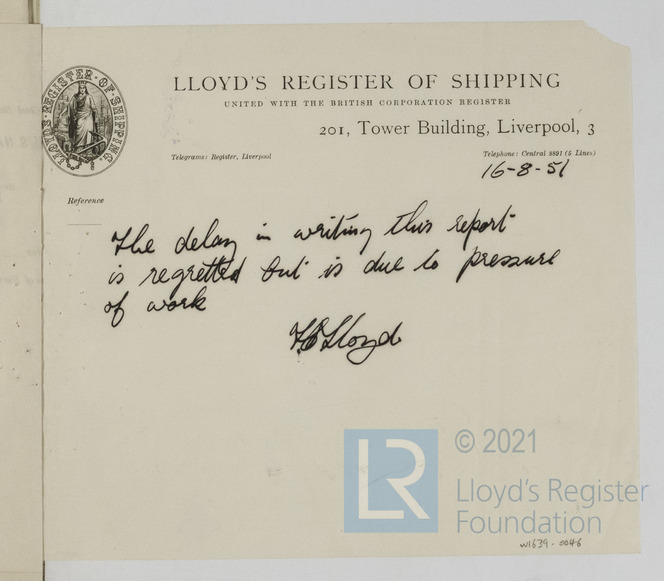 LLOYD'S REGISTER OF SHIPPING
UNITED WITH THE BRITISH CORPORATION REGISTER
201, Tower Building, Liverpool, 3
Telegrams: Register, Liverpool
Telephone: Central 8891 (5 Lines)
16-8-51
Reference
LLOYD'S REGISTER OF SHIPPING
The delay in writing this report
is regretted but is due to pressure
of work
Lloyd
LR
© 2021
Lloyd's Register
Foundation
W1639-0046